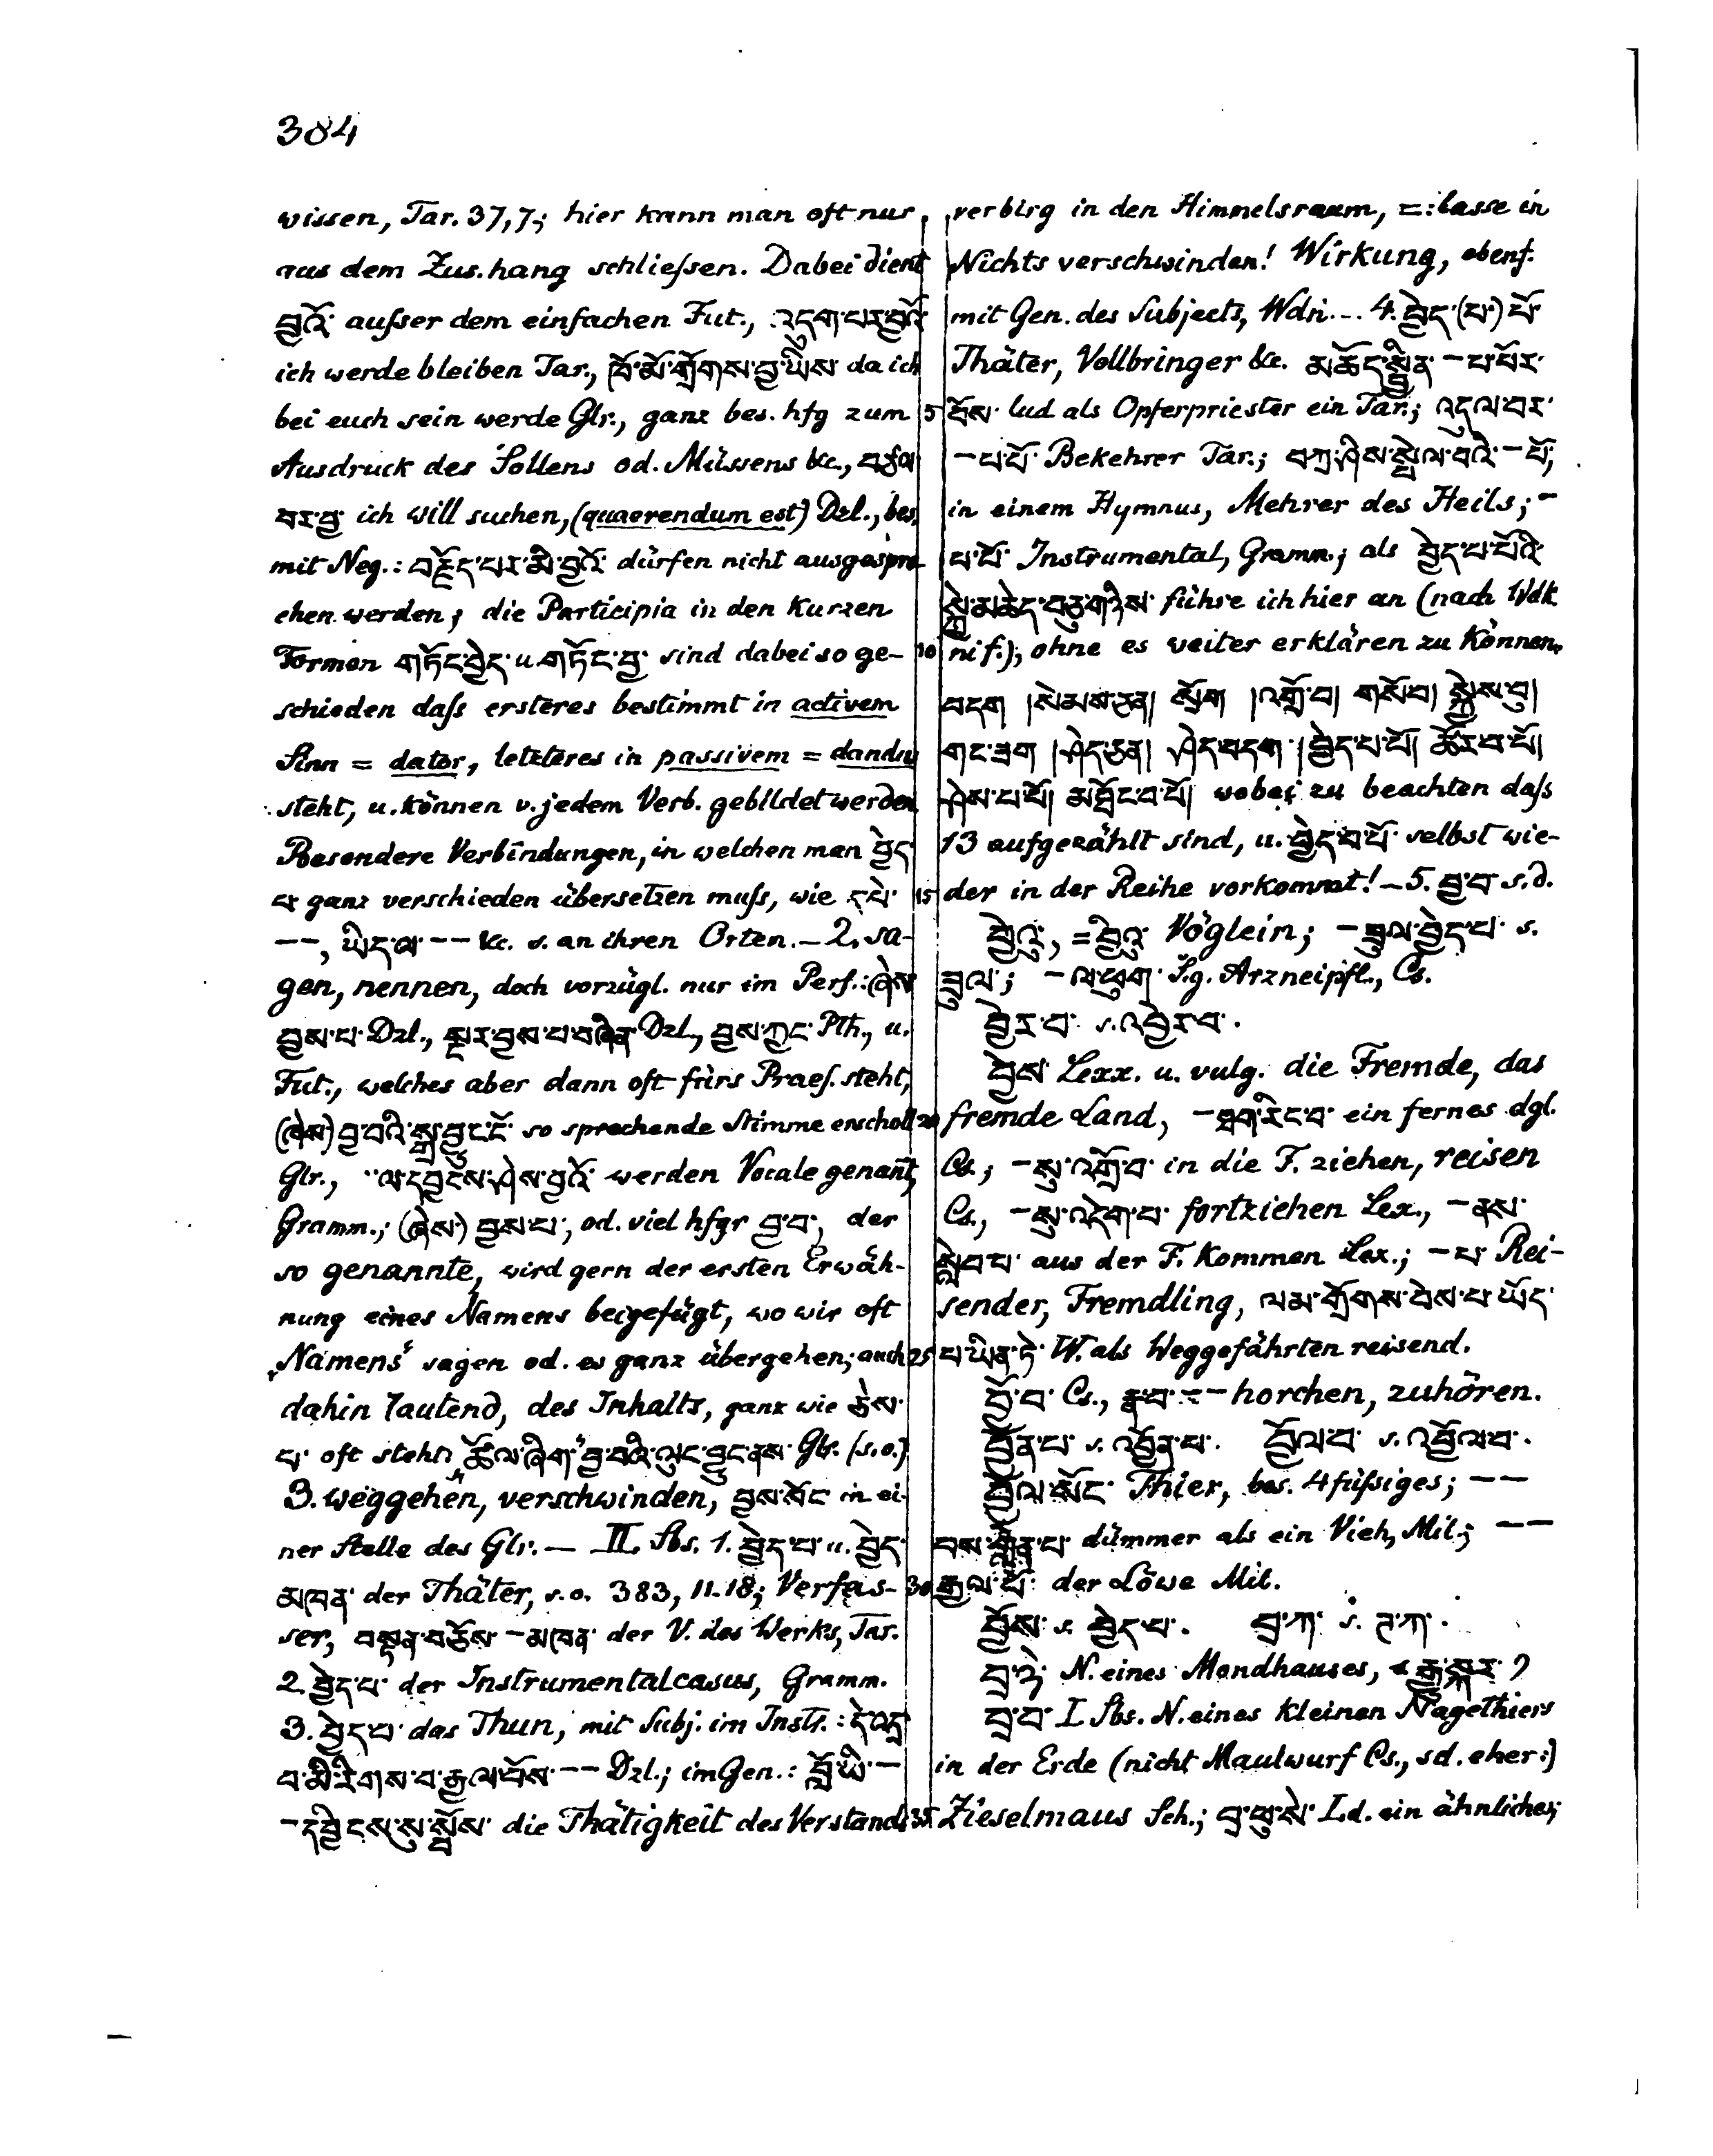 384
wissen, Tar. 37, 7; hier kann man oft nur
aus dem Zus.hang schließen. Dabei dient
བྱའོ་ außer dem einfachen Fut., འདུག་པར་བྱའོ་
ich werde bleiben Tar., ཁོ་མོ་གྲོགས་བྱ་ཡིས་ da ich
bei euch sein werde Glr., ganz bes. hfg zum
Ausdruck des Sollens od. Müssens &c., བཙལ་
བར་བྱ་ ich will suchen, (quaerendum est) Dzl., bes.
mit Neg.: བརྗོད་པར་མི་བྱའོ་ dürfen nicht ausgespro-
chen werden; die Participia in den kurzen
Formen གཏོང་བྱེད་ u. གཏོང་བྱ་ sind dabei so ge-
schieden daß ersteres bestimmt in activem
Sinn = dator, letzteres in passivem = dandus
steht, u. können v. jedem Verb. gebildet werden
Besondere Verbindungen, in welchen man བྱེད་
པ་ ganz verschieden übersetzen muß, wie དཔེ་
– –, ཡིད་ལ་ – – &c. s. an ihren Orten. – 2. sa-
gen, nennen, doch vorzügl. nur im Perf.: (ཞེས་
བྱས་པ་ Dzl., སྔར་བྱས་པ་བཞིན་ Dzl., བྱས་ཀྱང་ Pth., u.
Fut., welches aber dann oft fürs Praes. steht,
(ཞེས་) བྱ་བའི་སྒྲ་བྱུང་ངོ་ so sprechende Stimme erscholl
Glr., ལ་དབྱངས་ཞེས་བྱའོ་ werden Vocale genañt,
Gramm.; (ཞེས་) བྱས་པ་, od. viel hfgr བྱ་བ་, der
so genannte, wird gern der ersten Erwäh-
nung eines Namens beigefügt, wo wir oft
„Namens“ sagen od. es ganz übergehen; auch
dahin lautend, des Inhalts, ganz wie ཅེས་
པ་ oft steht, ཚོལ་ཞིག་བྱ་བའི་ལུང་བྱུང་ནས་ Glr. (s.o.)
3. weggehen, verschwinden, བྱས་སོང་ in ei-
ner Stelle des Glr. — II. Sbs. 1. བྱེད་པ་ u. བྱེད་
མཁན་ der Thäter, s. o. 383, 11. 18; Verfas-
ser, བསྟན་བཅོས་ – མཁན་ der V. des Werks, Tar.
2. བྱེད་པ་ der Instrumentalcasus, Gramm.
3. བྱེད་པ་ das Thun, mit Subj. im Instr.: དེ་འདྲ་
བ་མི་རིགས་པ་རྒྱལ་པོས་ – – Dzl.; im Gen.: བློ་ཡི་ –
– དབྱིངས་སུ་སྦོས་ die Thätigkeit des Verstands
verbirg in den Himmelsraum, =: lasse in
Nichts verschwinden! Wirkung, ebenf.
mit Gen. des Subjects, Wdn. – 4. བྱེད་(པ་)པོ་
Thäter, Vollbringer &c. མཆོད་སྦྱིན་ – པ་པོར་
5 བོས་ lud als Opferpriester ein Tar.; འདུལ་བར་
– པ་པོ་ Bekehrer Tar.; བཀྲ་ཤིས་སྤེལ་བའི་ – པོ་,
in einem Hymnus, Mehrer des Heils; –
པ་པོ་ Instrumental, Gramm.; als བྱེད་པ་པོའི་
སྐྱེ་མཆེད་བཅུ་གཉིས་ führe ich hier an (nach Wdk
10 nif.); ohne es weiter erklären zu können,
བདག །སེམས་ཅན། སྲོག །འགྲོ་བ། གསོབ། སྐྱེས་བུ།
གང་ཟག །ཤེད་ཅན། ཤེད་བདག །བྱེད་པ་པོ། ཚོར་བ་པོ།
ཤེས་པ་པོ། མཐོང་བ་པོ། wobei zu beachten daß
13 aufgezählt sind, u. བྱེད་པ་པོ་ selbst wie-
15 der in der Reihe vorkommt! – 5. བྱ་བ་ s.d.
བྱེའུ་, = བྱིའུ་ Vöglein; – ཟུལ་བྱེད་པ་ s.
ཟུལ་; – ལ་ཕུག་ S.g. Arzneipfl., Cs.
བྱེར་བ་ s. འབྱེར་བ་.
བྱེས་ Lexx. u. vulg. die Fremde, das
20 fremde Land, – ཐག་རིང་བ་ ein fernes dgl.
Cs.; – སུ་འགྲོ་བ་ in die F. ziehen, reisen
Cs., – སུ་འདེག་པ་ fortziehen Lex., – ནས་
སླེབ་པ་ aus der F. kommen Lex.; – པ་ Rei-
sender, Fremdling, ལམ་གྲོགས་བྱེས་པ་ཡོད་
25 པ་ཡིན་ཏེ་ W. als Weggefährten reisend.
བྱོ་བ་ Cs., རྣ་བ་ – – horchen, zuhören.
བྱོན་པ་ s. འབྱོན་པ་. བྱོལ་བ་ s. འབྱོལ་བ་.
བྱོལ་སོང་ Thier, bes. 4füßiges; – –
བས་གླེན་པ་ dümmer als ein Vieh, Mil.; – –
30 རྒྱལ་པོ་ der Löwe Mil.
བྱོས་ s. བྱེད་པ་. བྲ་ཀ་ s. ཊ་ཀ་.
བྲ་ཉེ་ N. eines Mondhauses, s. རྒྱུ་སྐར་ ?
བྲ་བ་ I. Sbs. N. eines kleinen Nagethiers
in der Erde (nicht Maulwurf Cs., sd. eher:)
35 Zieselmaus Sch.; བྲ་ཕུ་སེ་ Ld. ein ähnliches;